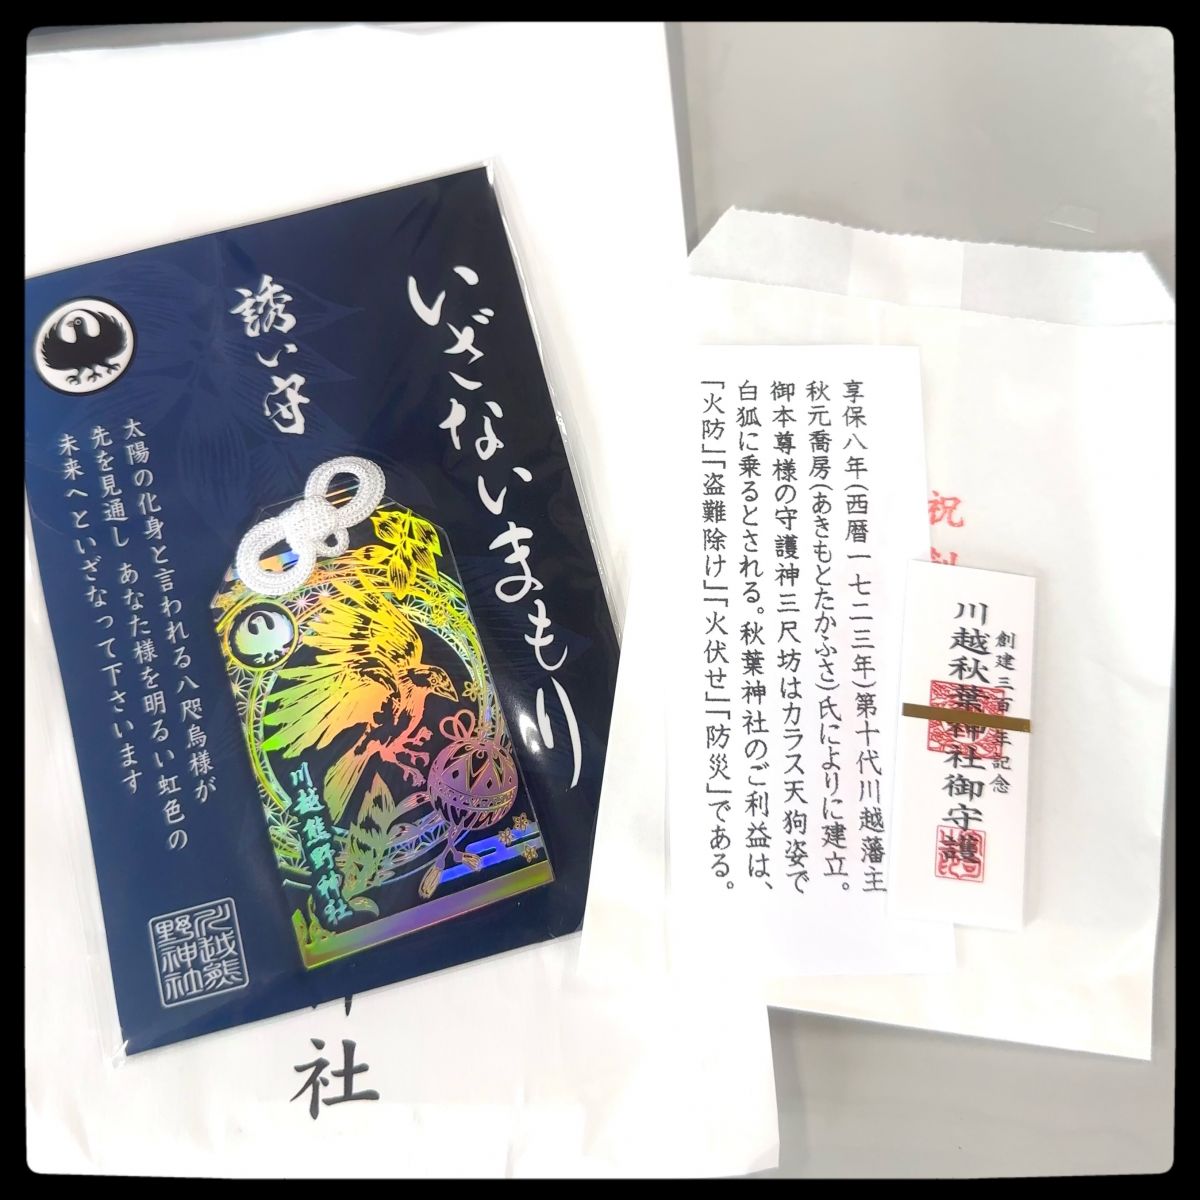 いざないまもり
誘い守
太陽の化身と言われる八咫烏様が
先を見通し あなた様を明るい虹色の
未来へといざなって下さいます
川越熊野神社
川越熊
野神社
社
享保八年(西暦一七二三年)第十代川越藩主
秋元喬房(あきもとたかふさ)氏によりに建立。
御本尊様の守護神三尺坊はカラス天狗姿で
白狐に乗るとされる。秋葉神社のご利益は、
「火防」「盗難除け」「火伏せ」「防災」である。
祝
創建三百年記念
川越秋葉神社御守護